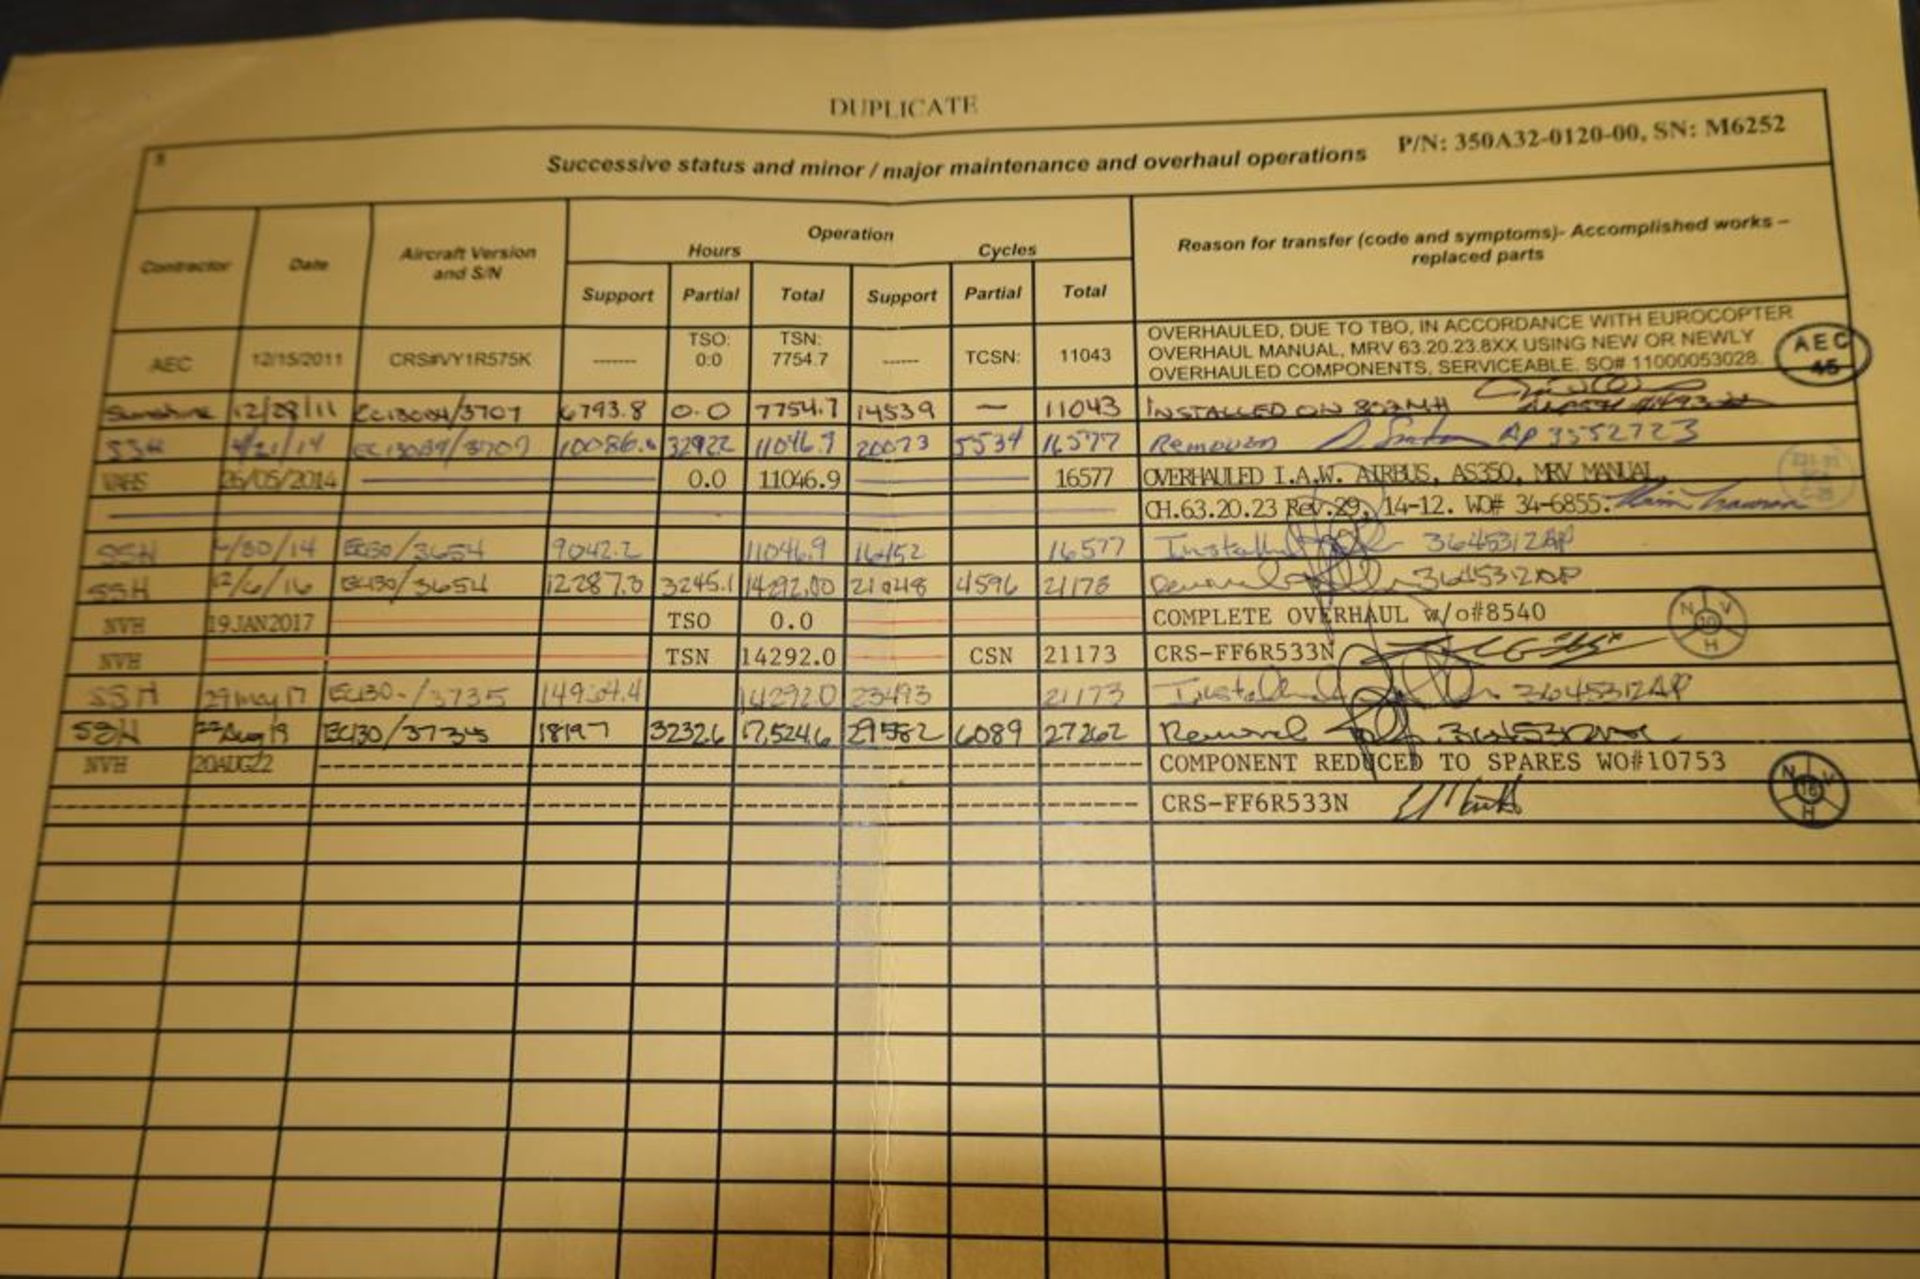 DUPLICATE
8
Successive status and minor / major maintenance and overhaul operations P/N: 350A32-0120-00, SN: M6252
Contractor Date Aircraft Version and S/N Operation Reason for transfer (code and symptoms)- Accomplished works – replaced parts
Hours Cycles
Support Partial Total Support Partial Total
AEC 12/15/2011 CRS#VY1R575K ------ TSO: 0:0 TSN: 7754.7 ----- TCSN: 11043 OVERHAULED, DUE TO TBO, IN ACCORDANCE WITH EUROCOPTER
OVERHAUL MANUAL, MRV 63.20.23.8XX USING NEW OR NEWLY
OVERHAULED COMPONENTS, SERVICEABLE. SO# 11000053028.
AEC 45
Sunshine 12/28/11 EC130B4/3707 6793.8 0.0 7754.7 14539 — 11043 INSTALLED ON 803MH
SSH 4/21/14 EC130B4/3707 10086.0 3292.2 11046.9 20073 5534 16577 Removed AP 3552723
VAHS 26/05/2014 0.0 11046.9 16577 OVERHAULED I.A.W. AIRBUS, AS350, MRV MANUAL,
CH.63.20.23 Rev.29, 14-12. WO# 34-6855.
SSH 6/30/14 EC130/3654 9042.2 11046.9 16452 16577 Installed 3645312AP
SSH 12/6/16 EC130/3654 12287.3 3245.1 14292.00 21048 4596 21173 Removed 3645312AP
NVH 19JAN2017 TSO 0.0 COMPLETE OVERHAUL w/o#8540
N V 10 H
NVH TSN 14292.0 CSN 21173 CRS-FF6R533N
SSH 29May17 EC130-/3735 14964.4 14292.0 23493 21173 Installed 3645312AP
SSH 22Aug19 EC130/3735 18197 3232.6 17,524.6 29582 6089 27262 Removal
NVH 20AUG22 COMPONENT REDUCED TO SPARES WO#10753
CRS-FF6R533N
N V 16 H